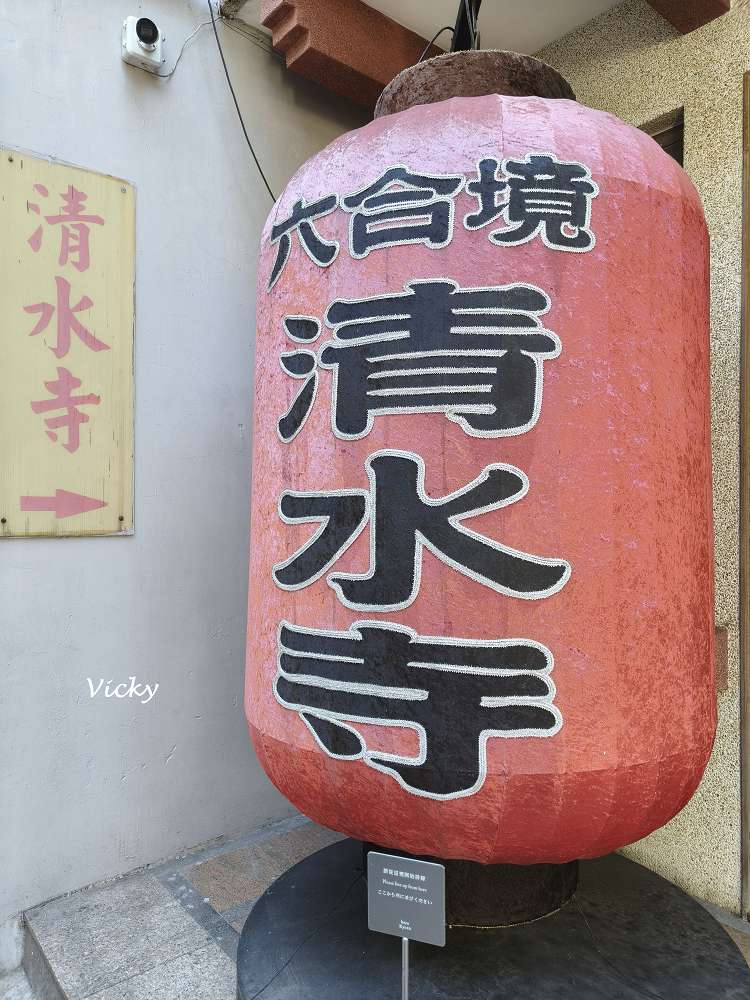 清水寺
六合境
清水寺
Vicky
請從這裡開始排隊
Please line up from here
ここから列に並びください